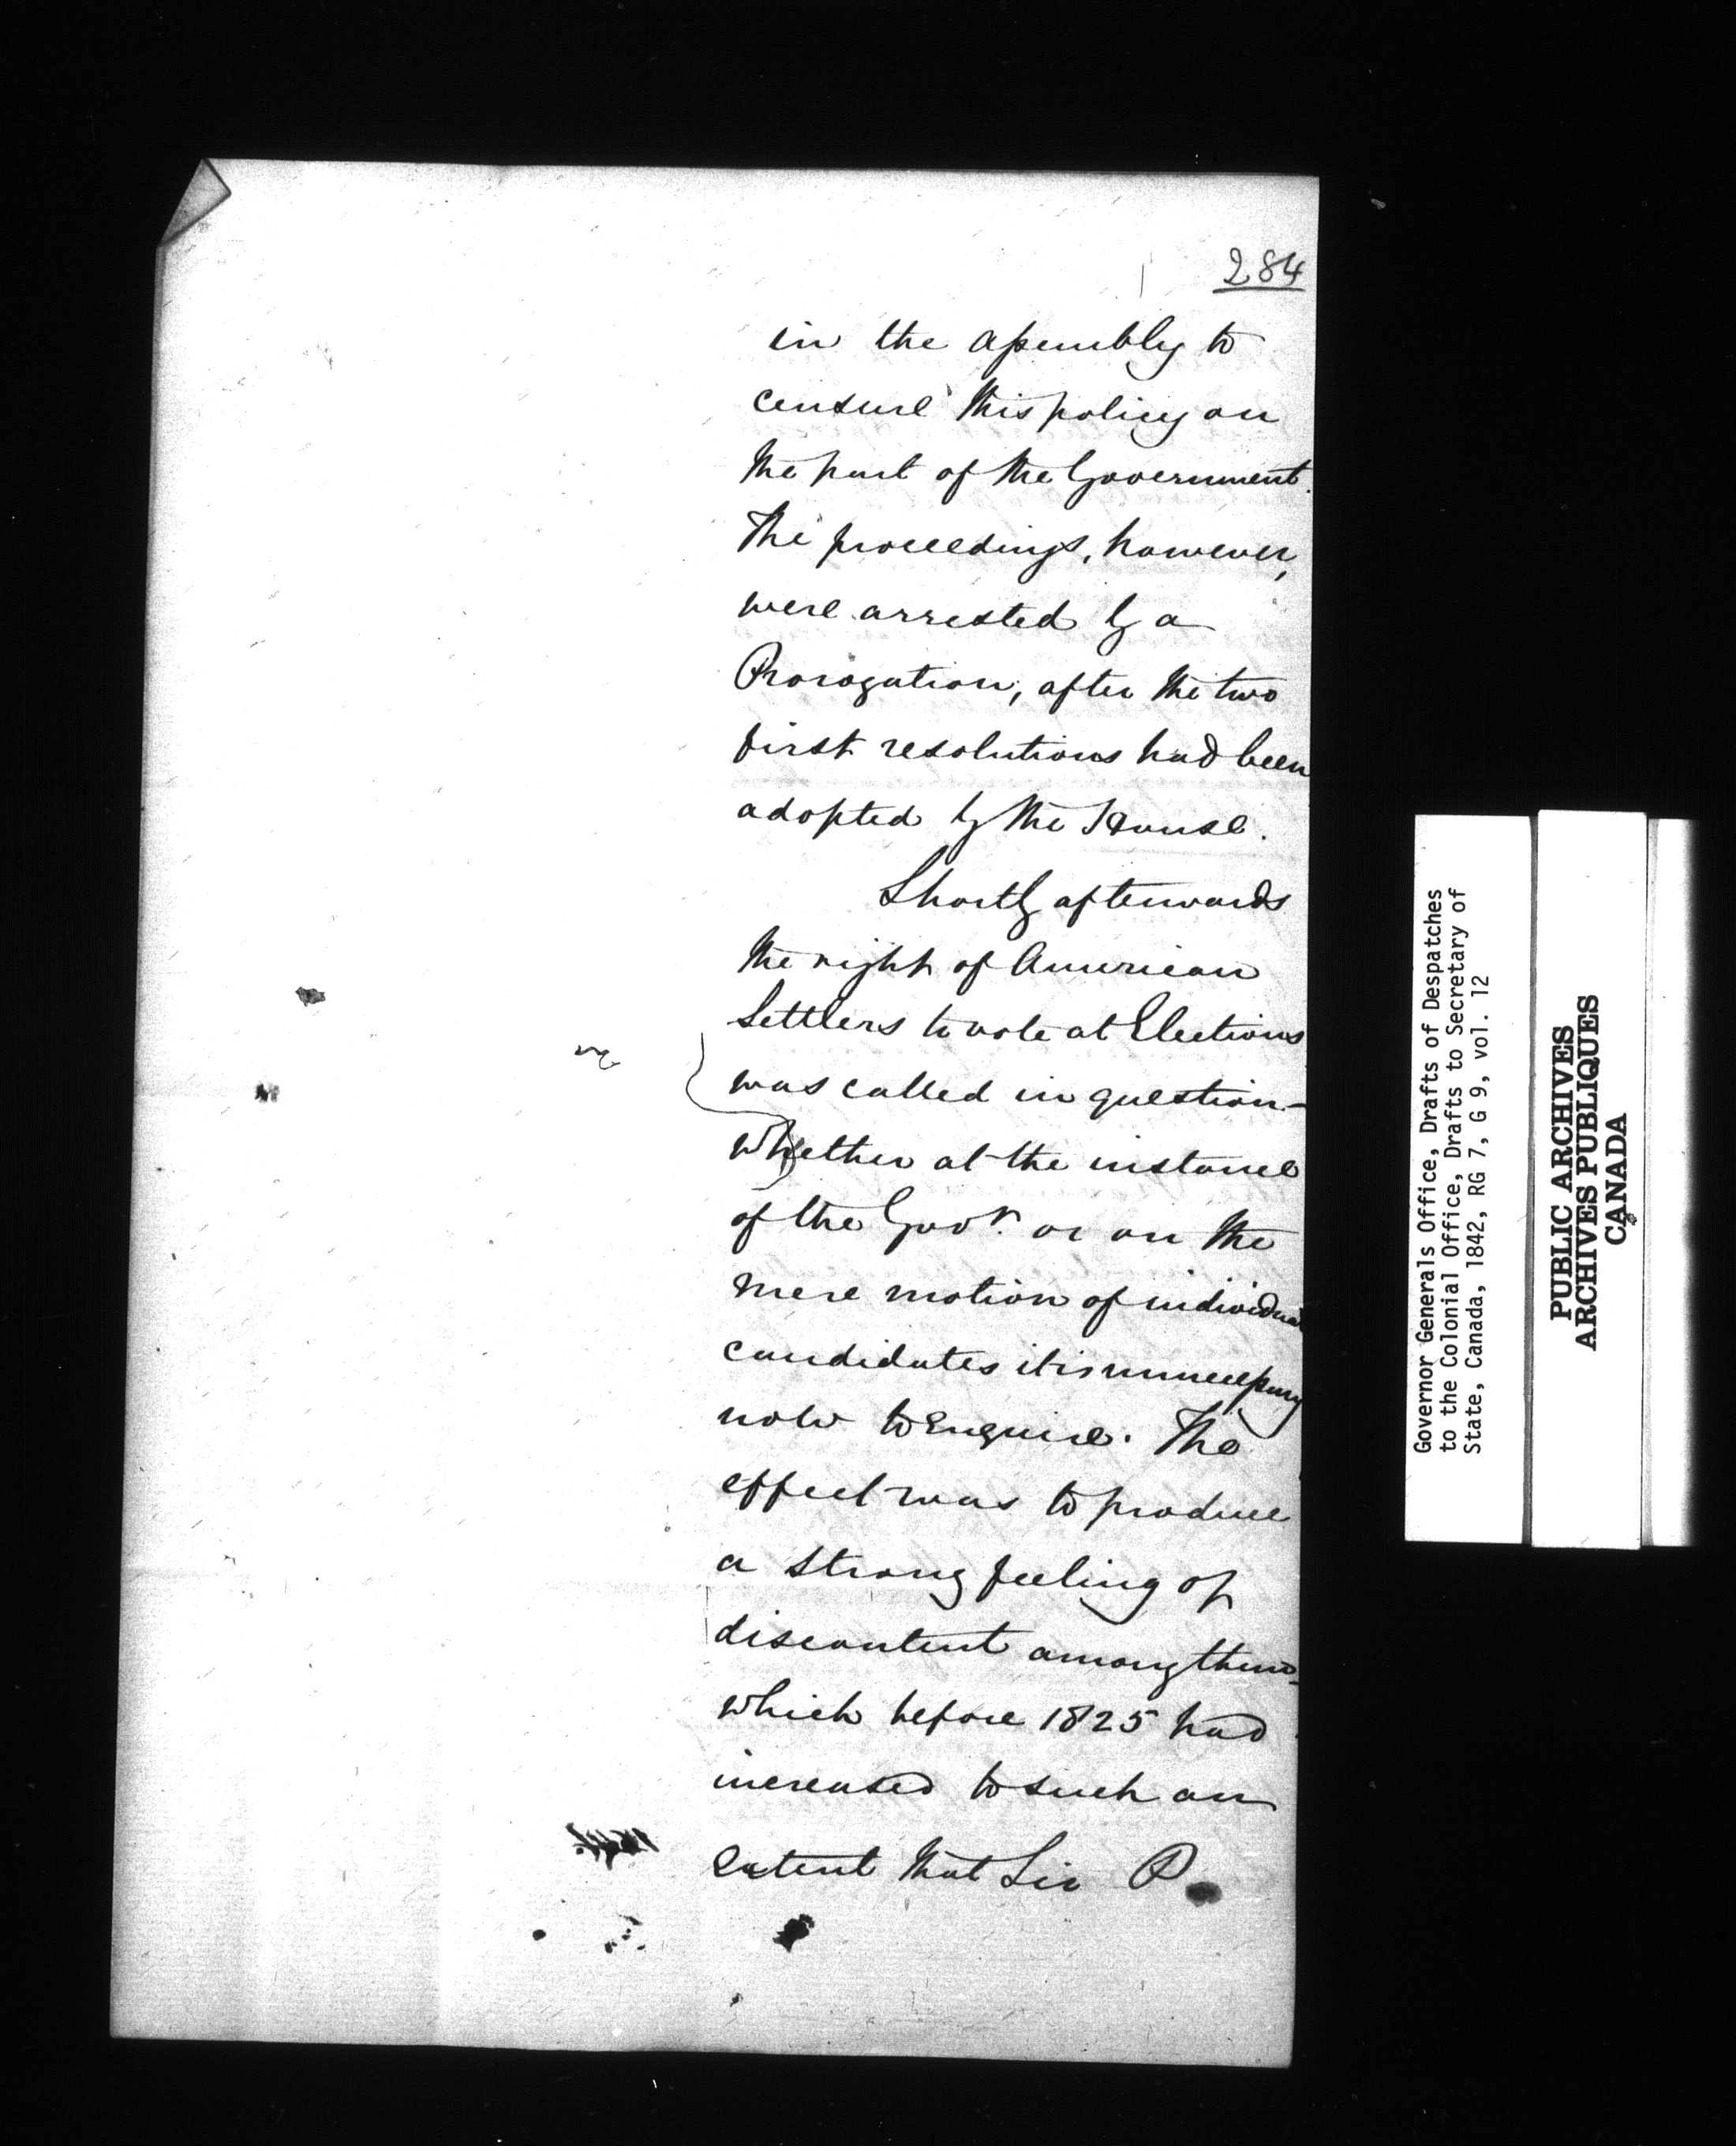 284
in the assembly to
censure this policy on
the part of the Government.
The proceedings, however,
were arrested by a
Prorogation, after the two
first resolutions had been
adopted by the House.
Shortly afterwards
the right of American
Settlers to vote at Elections
was called in question—
whether at the instance
of the Govt. or on the
mere motion of individual
candidates it is unnecessary
now to Enquire. The
effect was to produce
a strong feeling of
discontent among them—
which before 1825 had
increased to such an
extent that Sir P.
Governor Generals Office, Drafts of Despatches
to the Colonial Office, Drafts to Secretary of
State, Canada, 1842, RG 7, G 9, vol. 12
PUBLIC ARCHIVES
ARCHIVES PUBLIQUES
CANADA